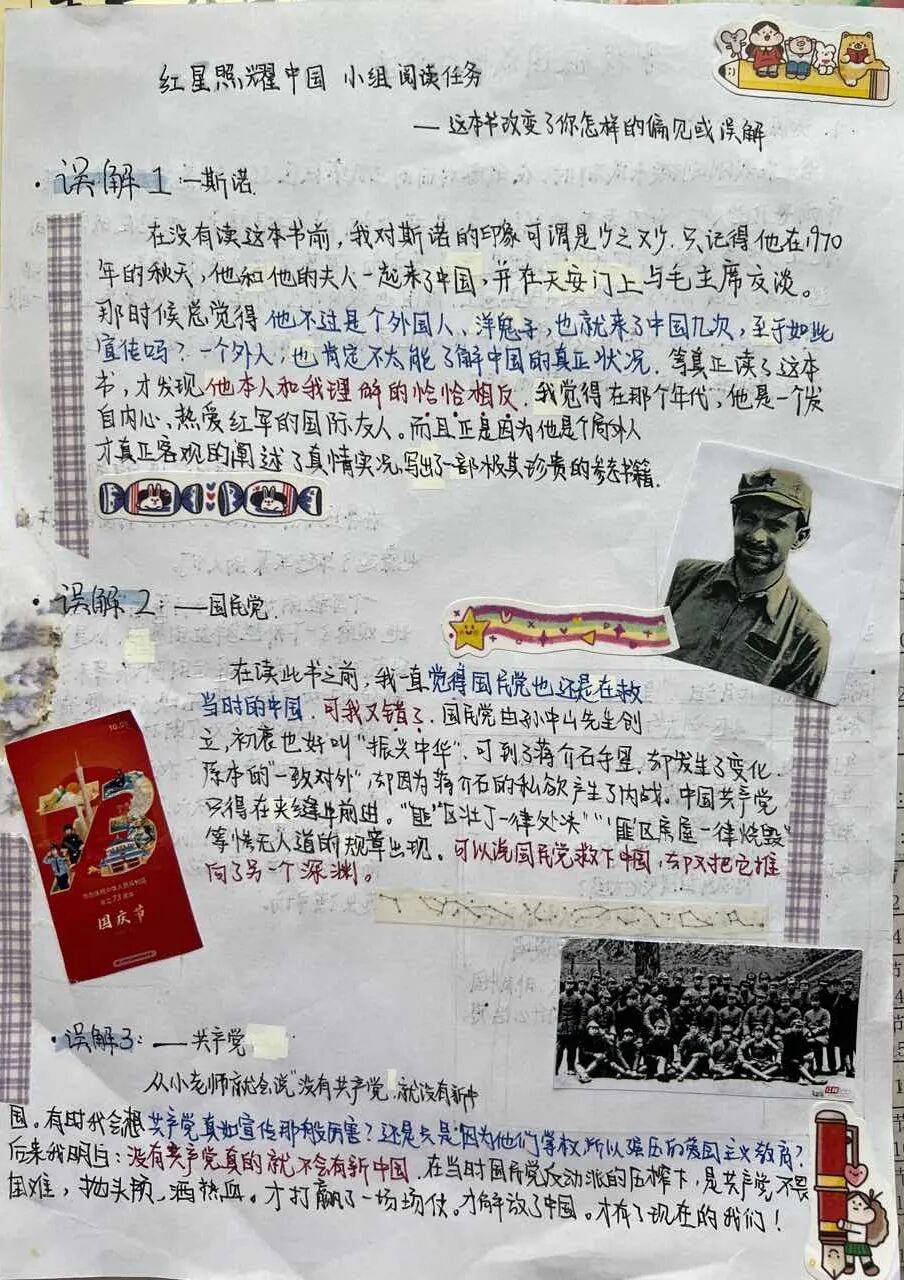 红星照耀中国 小组阅读任务
— 这本书改变了你怎样的偏见或误解
· 误解1:—斯诺.
在没有读这本书前,我对斯诺的印象可谓是少之又少.只记得他在1970
年的秋天,他和他的夫人一起来了中国,并在天安门上与毛主席交谈。
那时候总觉得他不过是个外国人、洋鬼子,也就来了中国几次,至于如此
宣传吗?一个外人,也肯定不太能了解中国的真正状况.等真正读了这本
书,才发现他本人和我理解的恰恰相反.我觉得在那个年代,他是一个发
自内心、热爱红军的国际友人。而且正是因为他是个局外人
才真正客观的阐述了真情实况,写出了一部极其珍贵的参考书籍.
· 误解2:——国民党.
在读此书之前,我一直觉得国民党也还是在救
当时的中国.可我又错了.国民党由孙中山先生创
立,初衷也好叫"振兴中华".可到了蒋介石手里,却发生了变化.
原本的"一致对外",却因为蒋介石的私欲产生了内战。中国共产党
只得在夹缝中前进。"匪"区壮丁一律处决""'匪'区房屋一律烧毁"
等惨无人道的规章出现。可以说国民党救下中国,却又把它推
向了另一个深渊。
73
国庆节
· 误解3:——共产党
从小老师就会说"没有共产党,就没有新中
国。有时我会想共产党真如宣传那般厉害?还是只是因为他们掌权所以强压的爱国主义教育?
后来我明白:没有共产党真的就不会有新中国.在当时国民党反动派的压榨下,是共产党不畏
困难,抛头颅,洒热血。才打赢了一场场仗。才解放了中国。才有了现在的我们!